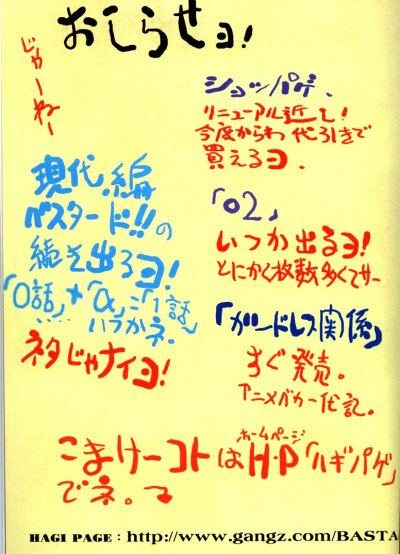 おしらせヨ!
じゃーねー
ショッパゲ.
リニューアル近し!
今度からわ 代引きで
買えるヨ.
現代.編
バスタード!!の
続き出るヨ!
「0話」+「α」=「1話」
いつかネ.
ネタじゃナイヨ!
「02」
いつか出るヨ!
とにかく枚数多くてサー
「ガンドレス関係」
すぐ発売。
アニメバカ一代記。
こまけーコトはH・P「ハギパゲ」
ホームページ
でネ。
HAGI PAGE : http://www.gangz.com/BASTA